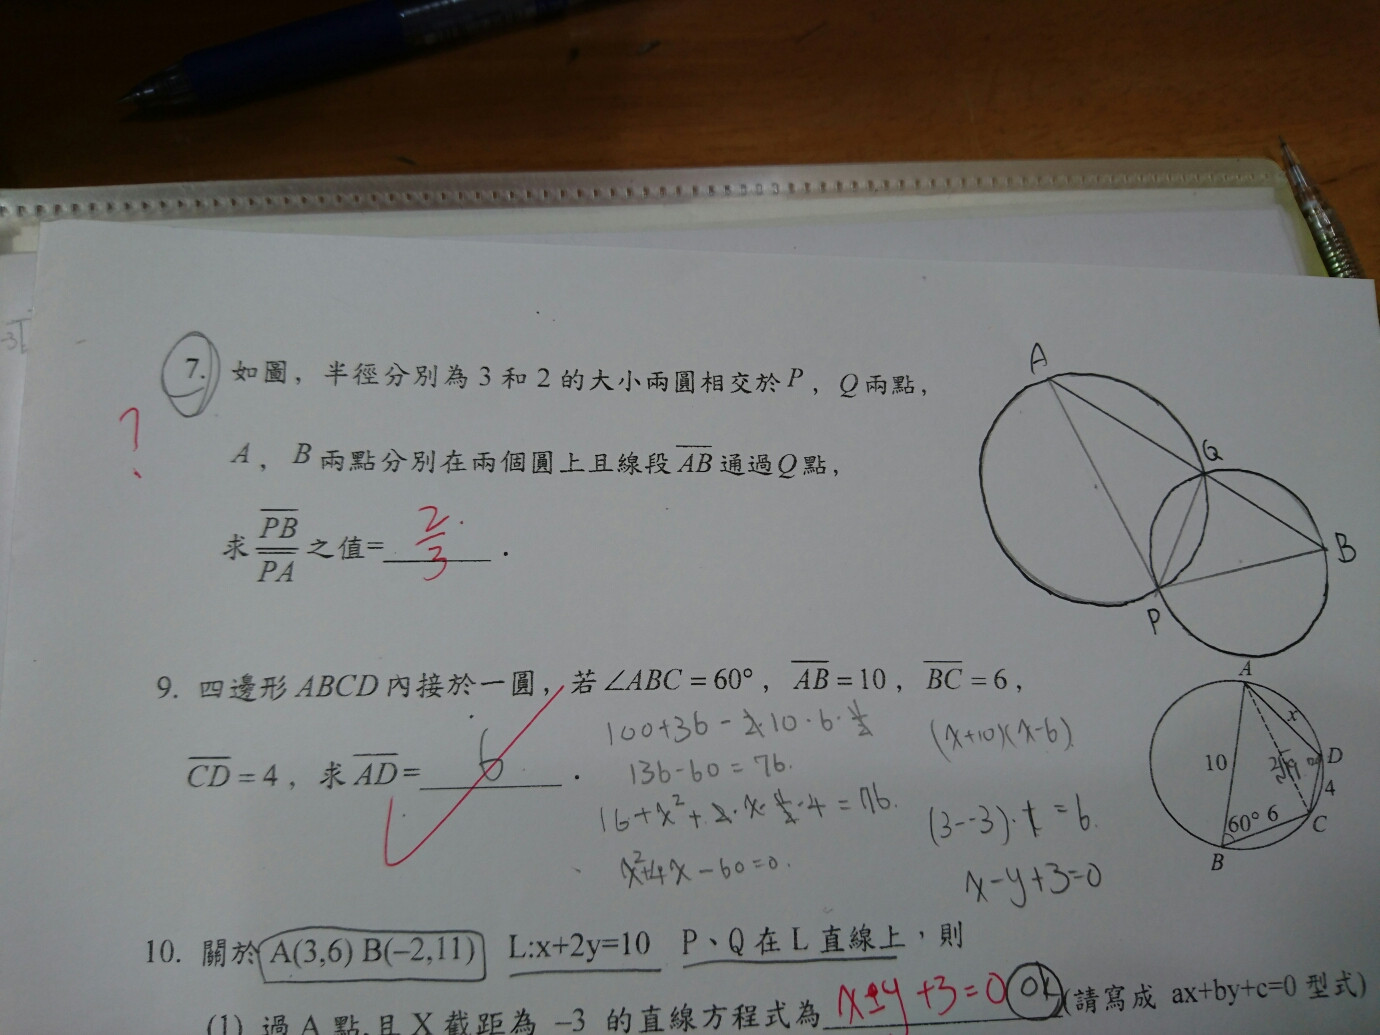 7. 如圖，半徑分別為 3 和 2 的大小兩圓相交於 P，Q 兩點，
?
A，B 兩點分別在兩個圓上且線段 AB 通過 Q 點，
求 PB/PA 之值= 2/3 .
A
Q
B
P
9. 四邊形 ABCD 內接於一圓，若 ∠ABC = 60°，AB = 10，BC = 6，
CD = 4，求 AD = 6 .
100+36-2·10·6·1/2
136-60=76.
16+x²+2·x·1/2·4=76.
x²+4x-60=0.
(x+10)(x-6)
(3--3)·1=6.
x-y+3=0
A
x
10
2√19
D
4
60° 6
C
B
10. 關於 A(3,6) B(–2,11) L:x+2y=10 P、Q 在 L 直線上，則
(1) 過 A 點,且 X 截距為 –3 的直線方程式為 x-y+3=0 OK (請寫成 ax+by+c=0 型式)